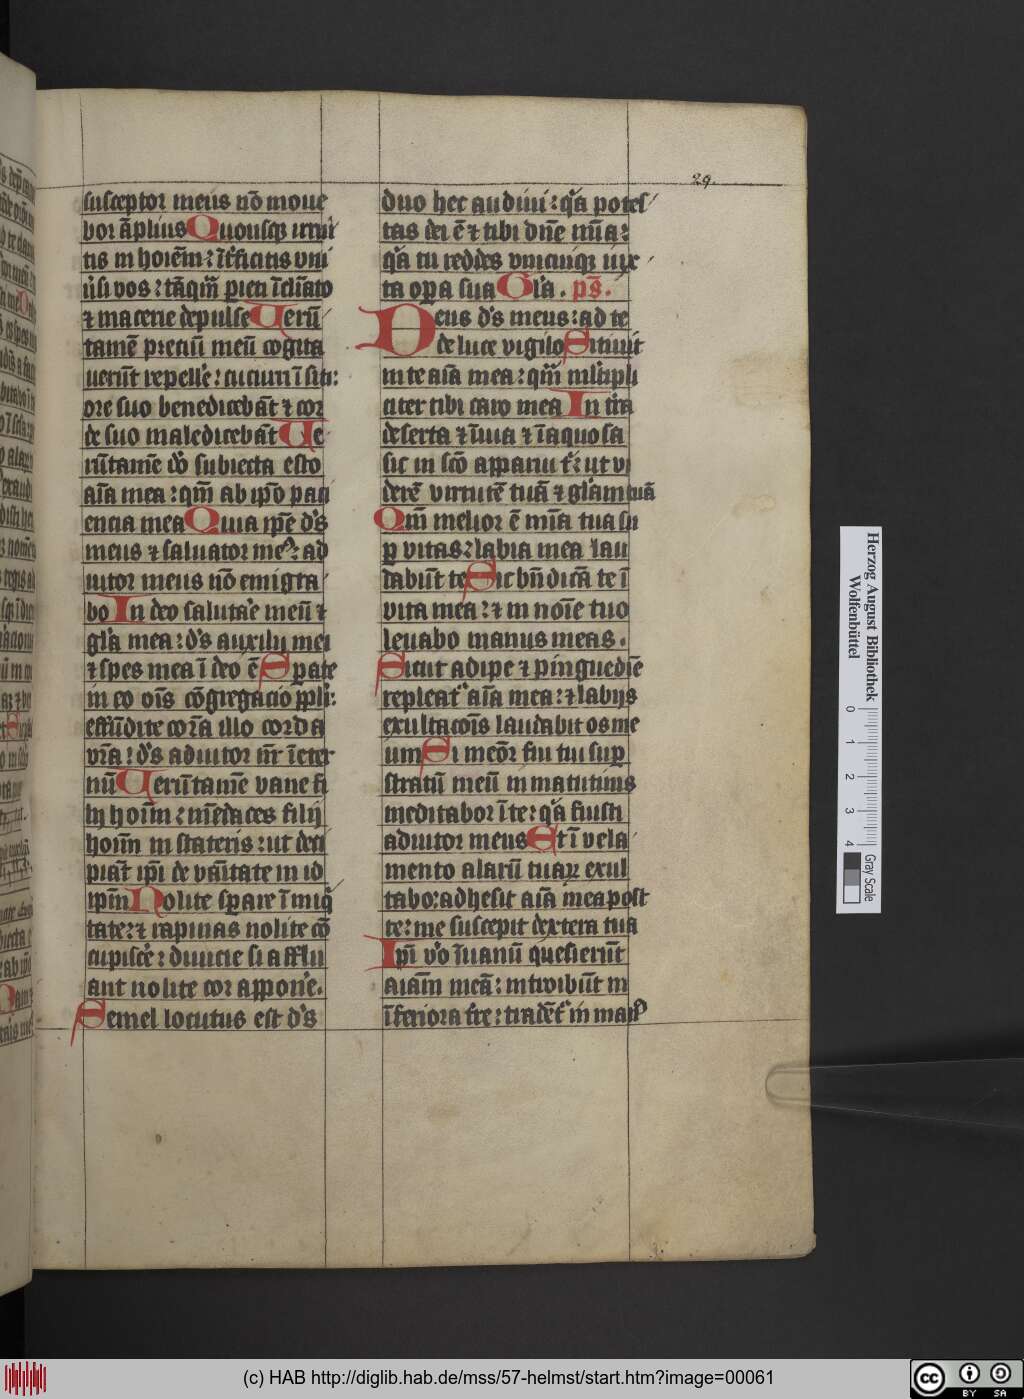 29.
susceptor meus nō moue
bor āplius Quousq; irrui
tis in hoiēm: īt͛ficitis vni
ūsi vos: tāqm̄ pieti īcliato
⁊ macerie depulse Uerū
tamē preciū meū cogita
uerūt repelle͛: cucurri ī siti:
ore suo benedicebāt ⁊ cor
de suo maledicebāt Ue
rūtamē dō subiecta esto
aīa mea: qm̄ ab ip̄o paci
encia mea Quia ip̄e d̄s
meus ⁊ saluator meꝰ: ad
iutor meus nō emigra
bo In deo saluta͛e meū ⁊
gl̄a mea: d̄s auxilij mei
⁊ spes mea ī deo ē Sperate
in eo oīs cōgregacio ppli:
effūdite corā illo corda
vr̄a: d̄s adiutor nr̄ ī eter
nū Uerūtamē vane fi
lij hoīm: mēdaces filij
hoīm in stateris: ut deci
piāt ip̄i de vāitate in id
ip̄m Nolite sperare ī iniq̄
tate: ⁊ rapinas nolite cō
cupisce͛: diuicie si afflu
ant nolite cor appone͛.
Semel locutus est d̄s
duo hec audiui: q̄a potes
tas dei ē ⁊ tibi dn̄e mīa:
q̄a tu reddes vnicuiq; iux
ta opera sua Gl̄a. ps̄.
Deus d̄s meus: ad te
de luce vigilo Sitiuit
in te aīa mea: qm̄ ml̄tipli
citer tibi caro mea In tr̄a
deserta ⁊ īuia ⁊ īaquosa
sic in scō apparui t͛: ut vi
derē virtutē tuā ⁊ gl̄am tuā
Qm̄ melior ē mīa tua su
per vitas: labia mea lau
dabūt te Sic bn̄dicā te ī
vita mea: ⁊ in noīe tuo
leuabo manus meas.
Sicut adipe ⁊ pinguedīe
repleat͛ aīa mea: ⁊ labijs
exultacōis laudabit os me
um Si meōr fui tui super
stratū meū in matutinis
meditabor ī te: q̄a fuisti
adiutor meus Et ī vela
mento alarū tuaꝝ exul
tabo: adhesit aīa mea post
te: me suscepit dextera tua
Ip̄i vō īuanū quesierūt
aiam meā: introibūt in
īferiora tre͛: tradēt͛ in manꝰ
Herzog August Bibliothek
Wolfenbüttel
0 1 2 3 4
Gray Scale
(c) HAB http://diglib.hab.de/mss/57-helmst/start.htm?image=00061
cc BY SA